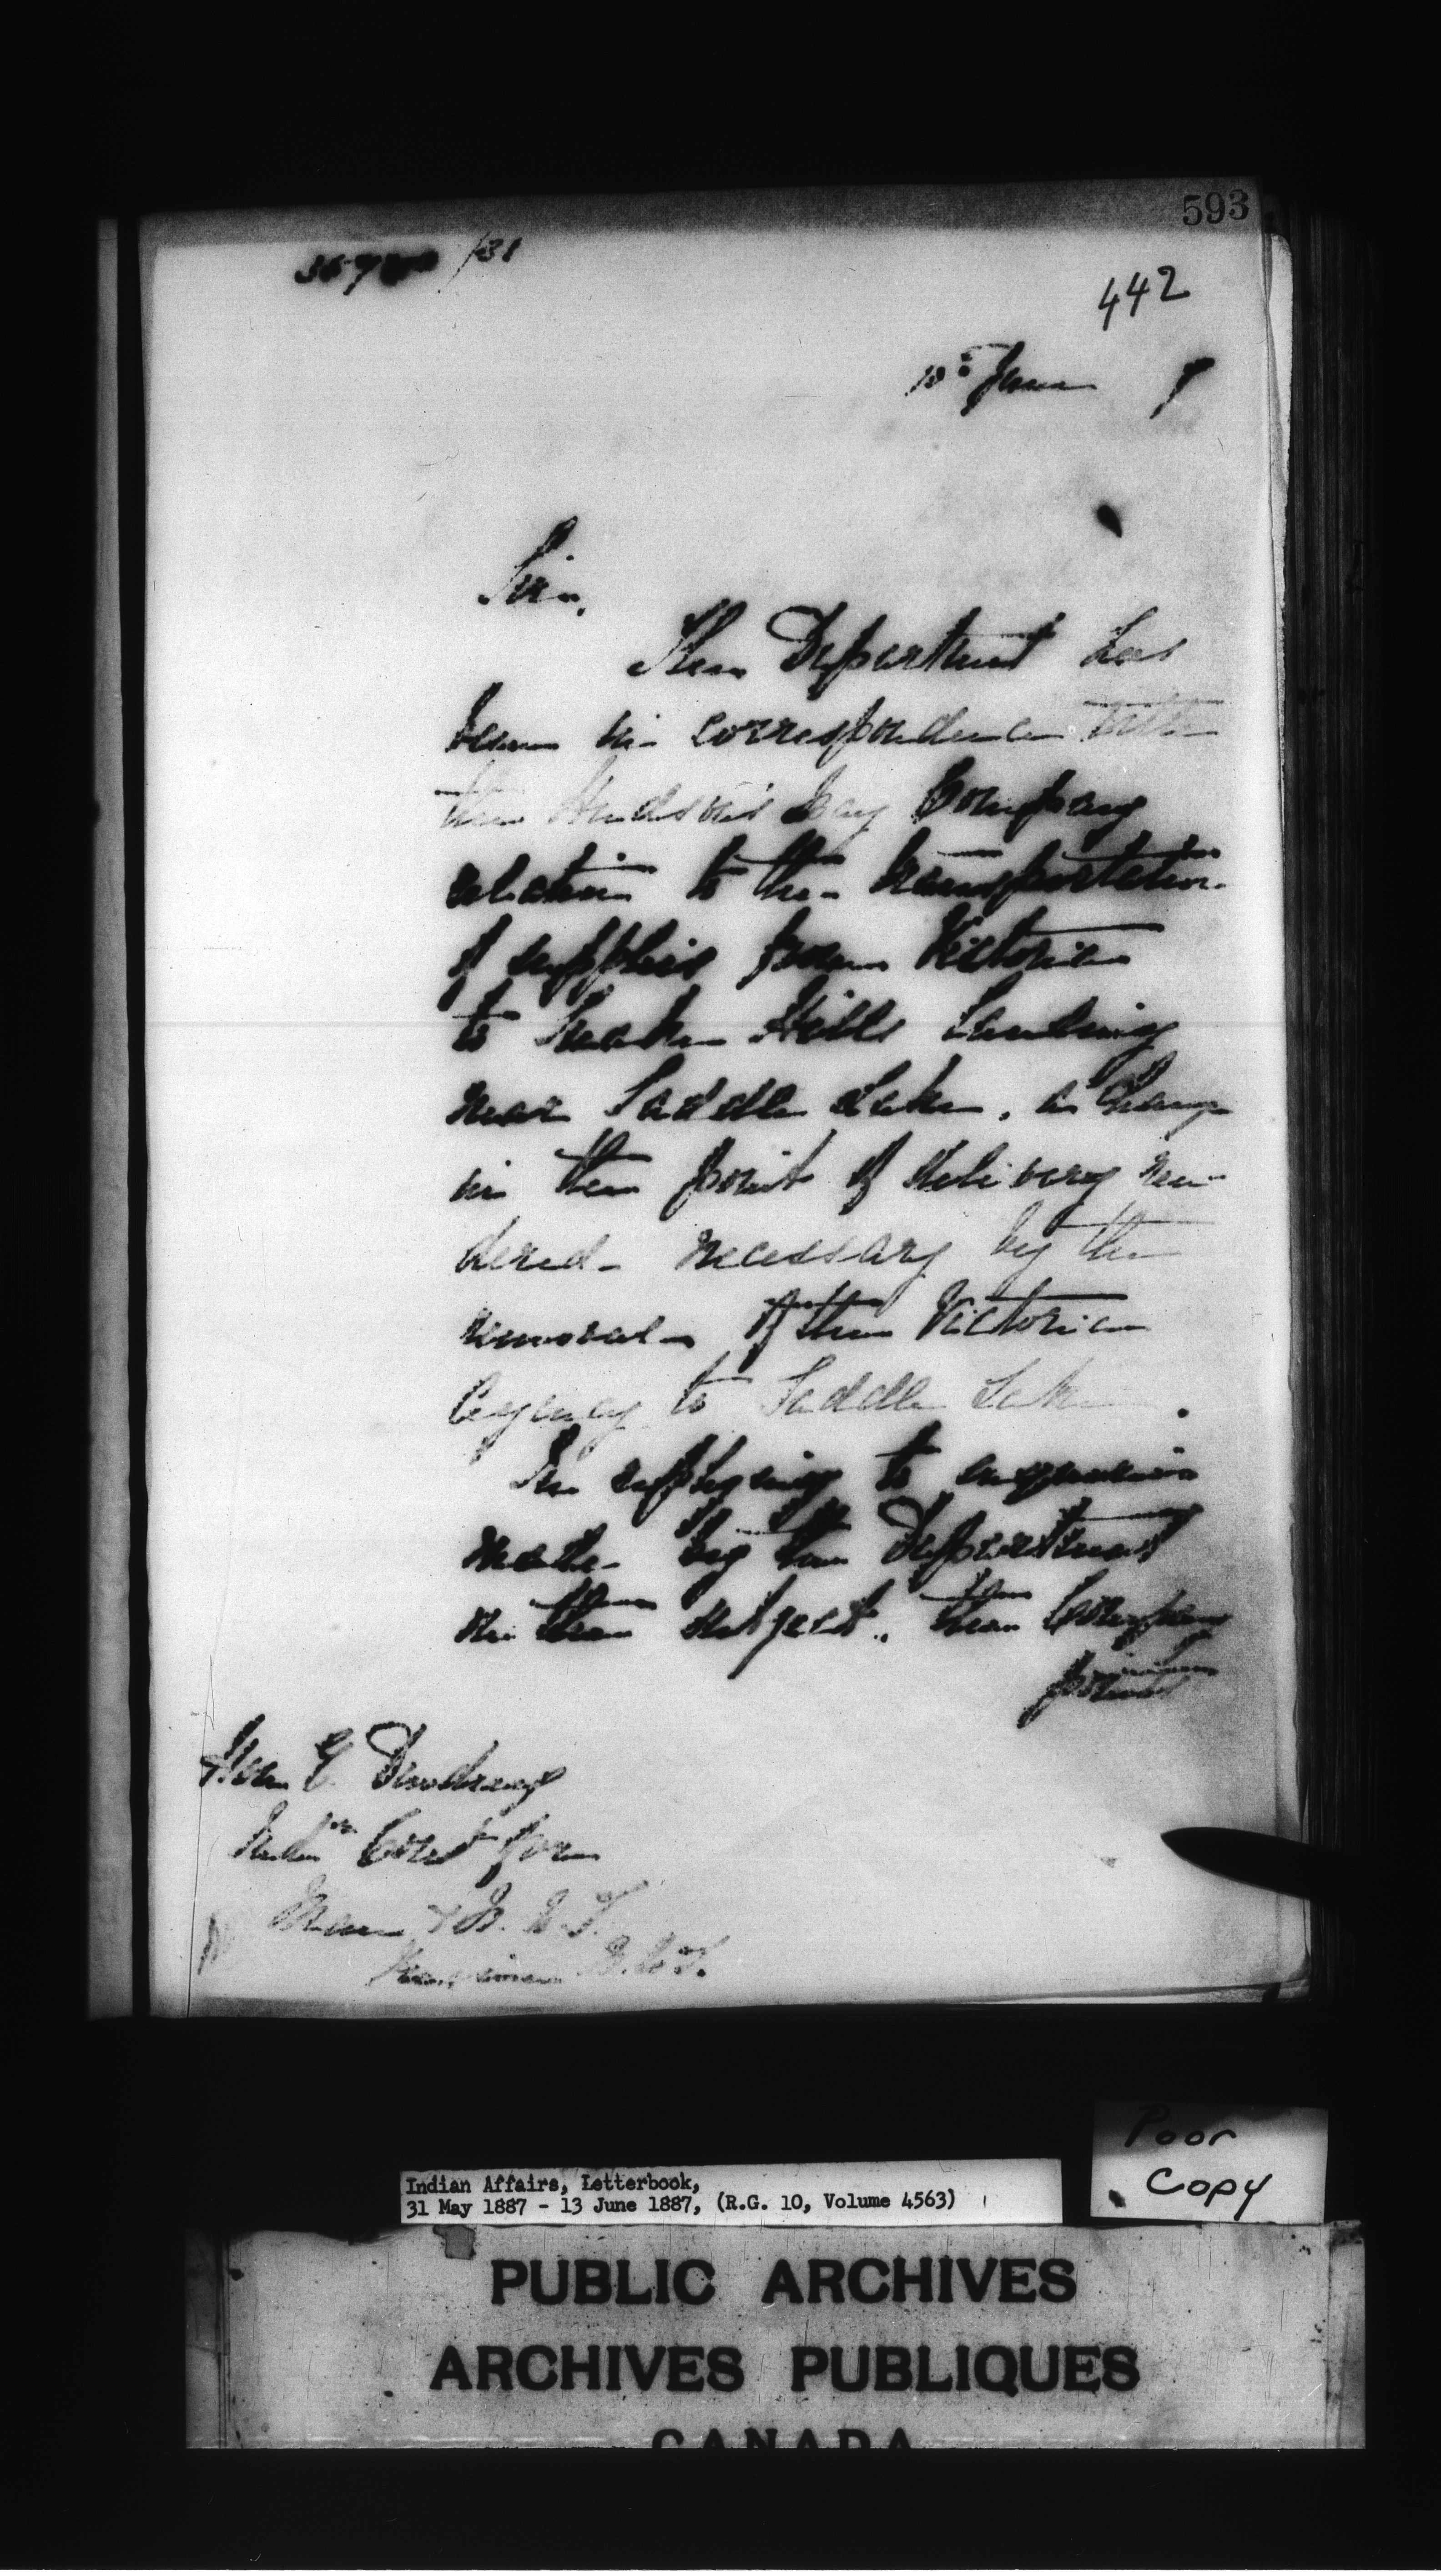 593
/31
442
10th June 7
Sir,
The Department has
been in correspondence with
the Hudson's Bay Company
relative to the transportation
of supplies from Victoria
to Snake Hills Landing
near Saddle Lake, a change
in the point of delivery ren-
dered necessary by the
removal of the Victoria
Agency to Saddle Lake.
In replying to enquiries
made by the Department
on the subject, the Company
points
Hon E. Dewdney
Indn Comr for
Man & N. W. T.
Regina N.W.T.
Poor
Copy
Indian Affairs, Letterbook,
31 May 1887 - 13 June 1887, (R.G. 10, Volume 4563)
PUBLIC ARCHIVES
ARCHIVES PUBLIQUES
CANADA